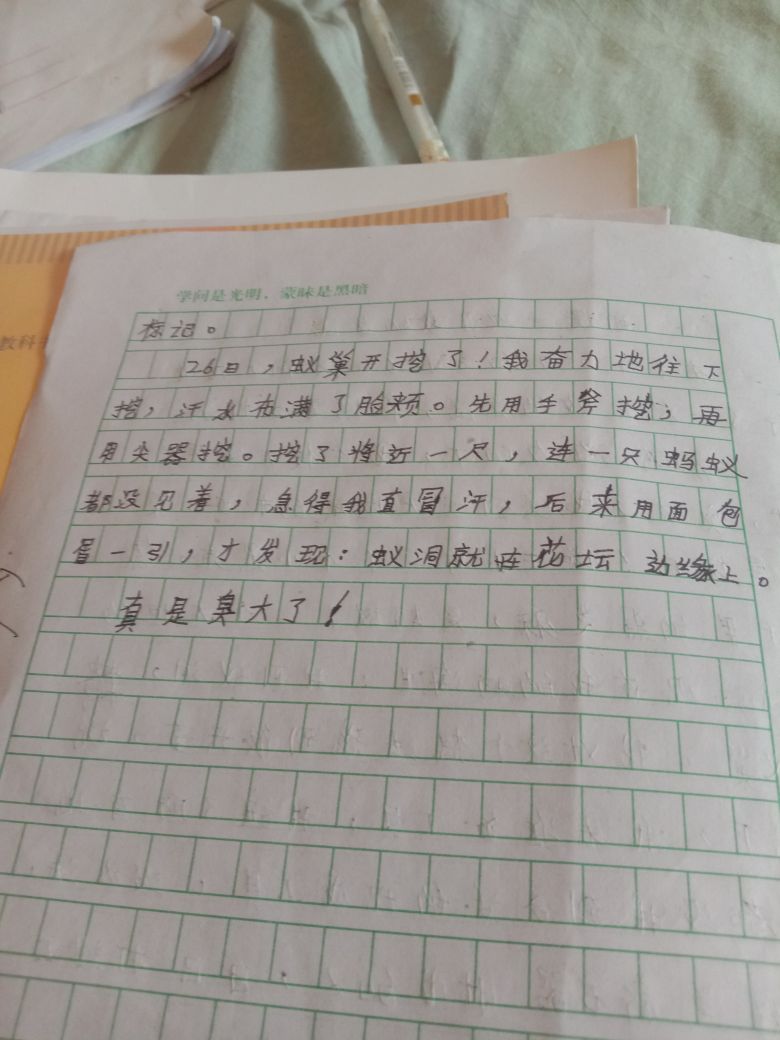 学问是光明，蒙昧是黑暗
标记。
26日，蚁巢开挖了！我奋力地往下
挖，汗水布满了脸颊。先用手斧挖，再
用尖器挖。挖了将近一尺，连一只蚂蚁
都没见着，急得我直冒汗，后来用面包
屑一引，才发现：蚁洞就在花坛边缘上。
真是臭大了！
教科